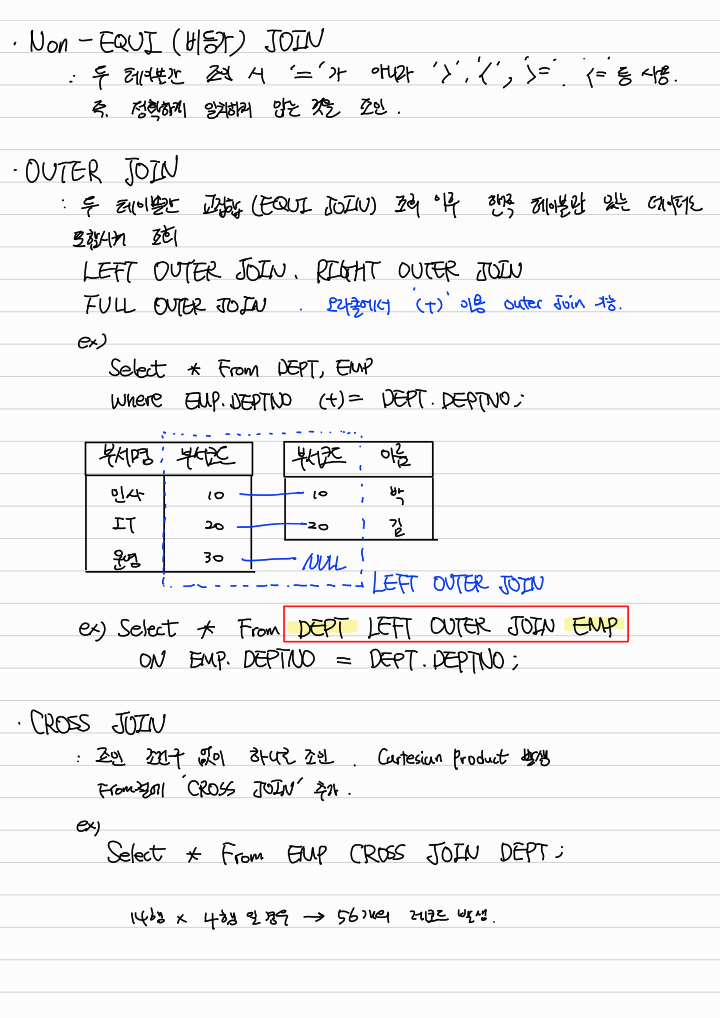 · Non - EQUI (비등가) JOIN
: 두 테이블간 조인 시 '='가 아니라 '>', '<', '>=', '<=' 등 사용.
즉, 정확하게 일치하지 않는 것을 조인.
· OUTER JOIN
: 두 테이블간 교집합 (EQUI JOIN) 조회 이후 한쪽 테이블만 있는 데이터도
포함시켜 조회
LEFT OUTER JOIN, RIGHT OUTER JOIN
FULL OUTER JOIN . 오라클에서 '(+)' 이용 outer join 가능.
ex)
Select * From DEPT, EMP
Where EMP.DEPTNO (+)= DEPT.DEPTNO;
부서명 부서코드 부서코드 이름
인사 10 10 박
IT 20 20 길
운영 30 NULL
LEFT OUTER JOIN
ex) Select * From DEPT LEFT OUTER JOIN EMP
ON EMP.DEPTNO = DEPT.DEPTNO;
· CROSS JOIN
: 조인 조건구 없이 하나로 조인. Cartesian Product 발생
From절에 'CROSS JOIN' 추가.
ex)
Select * From EMP CROSS JOIN DEPT;
14행 x 4행 일 경우 → 56개의 레코드 발생.